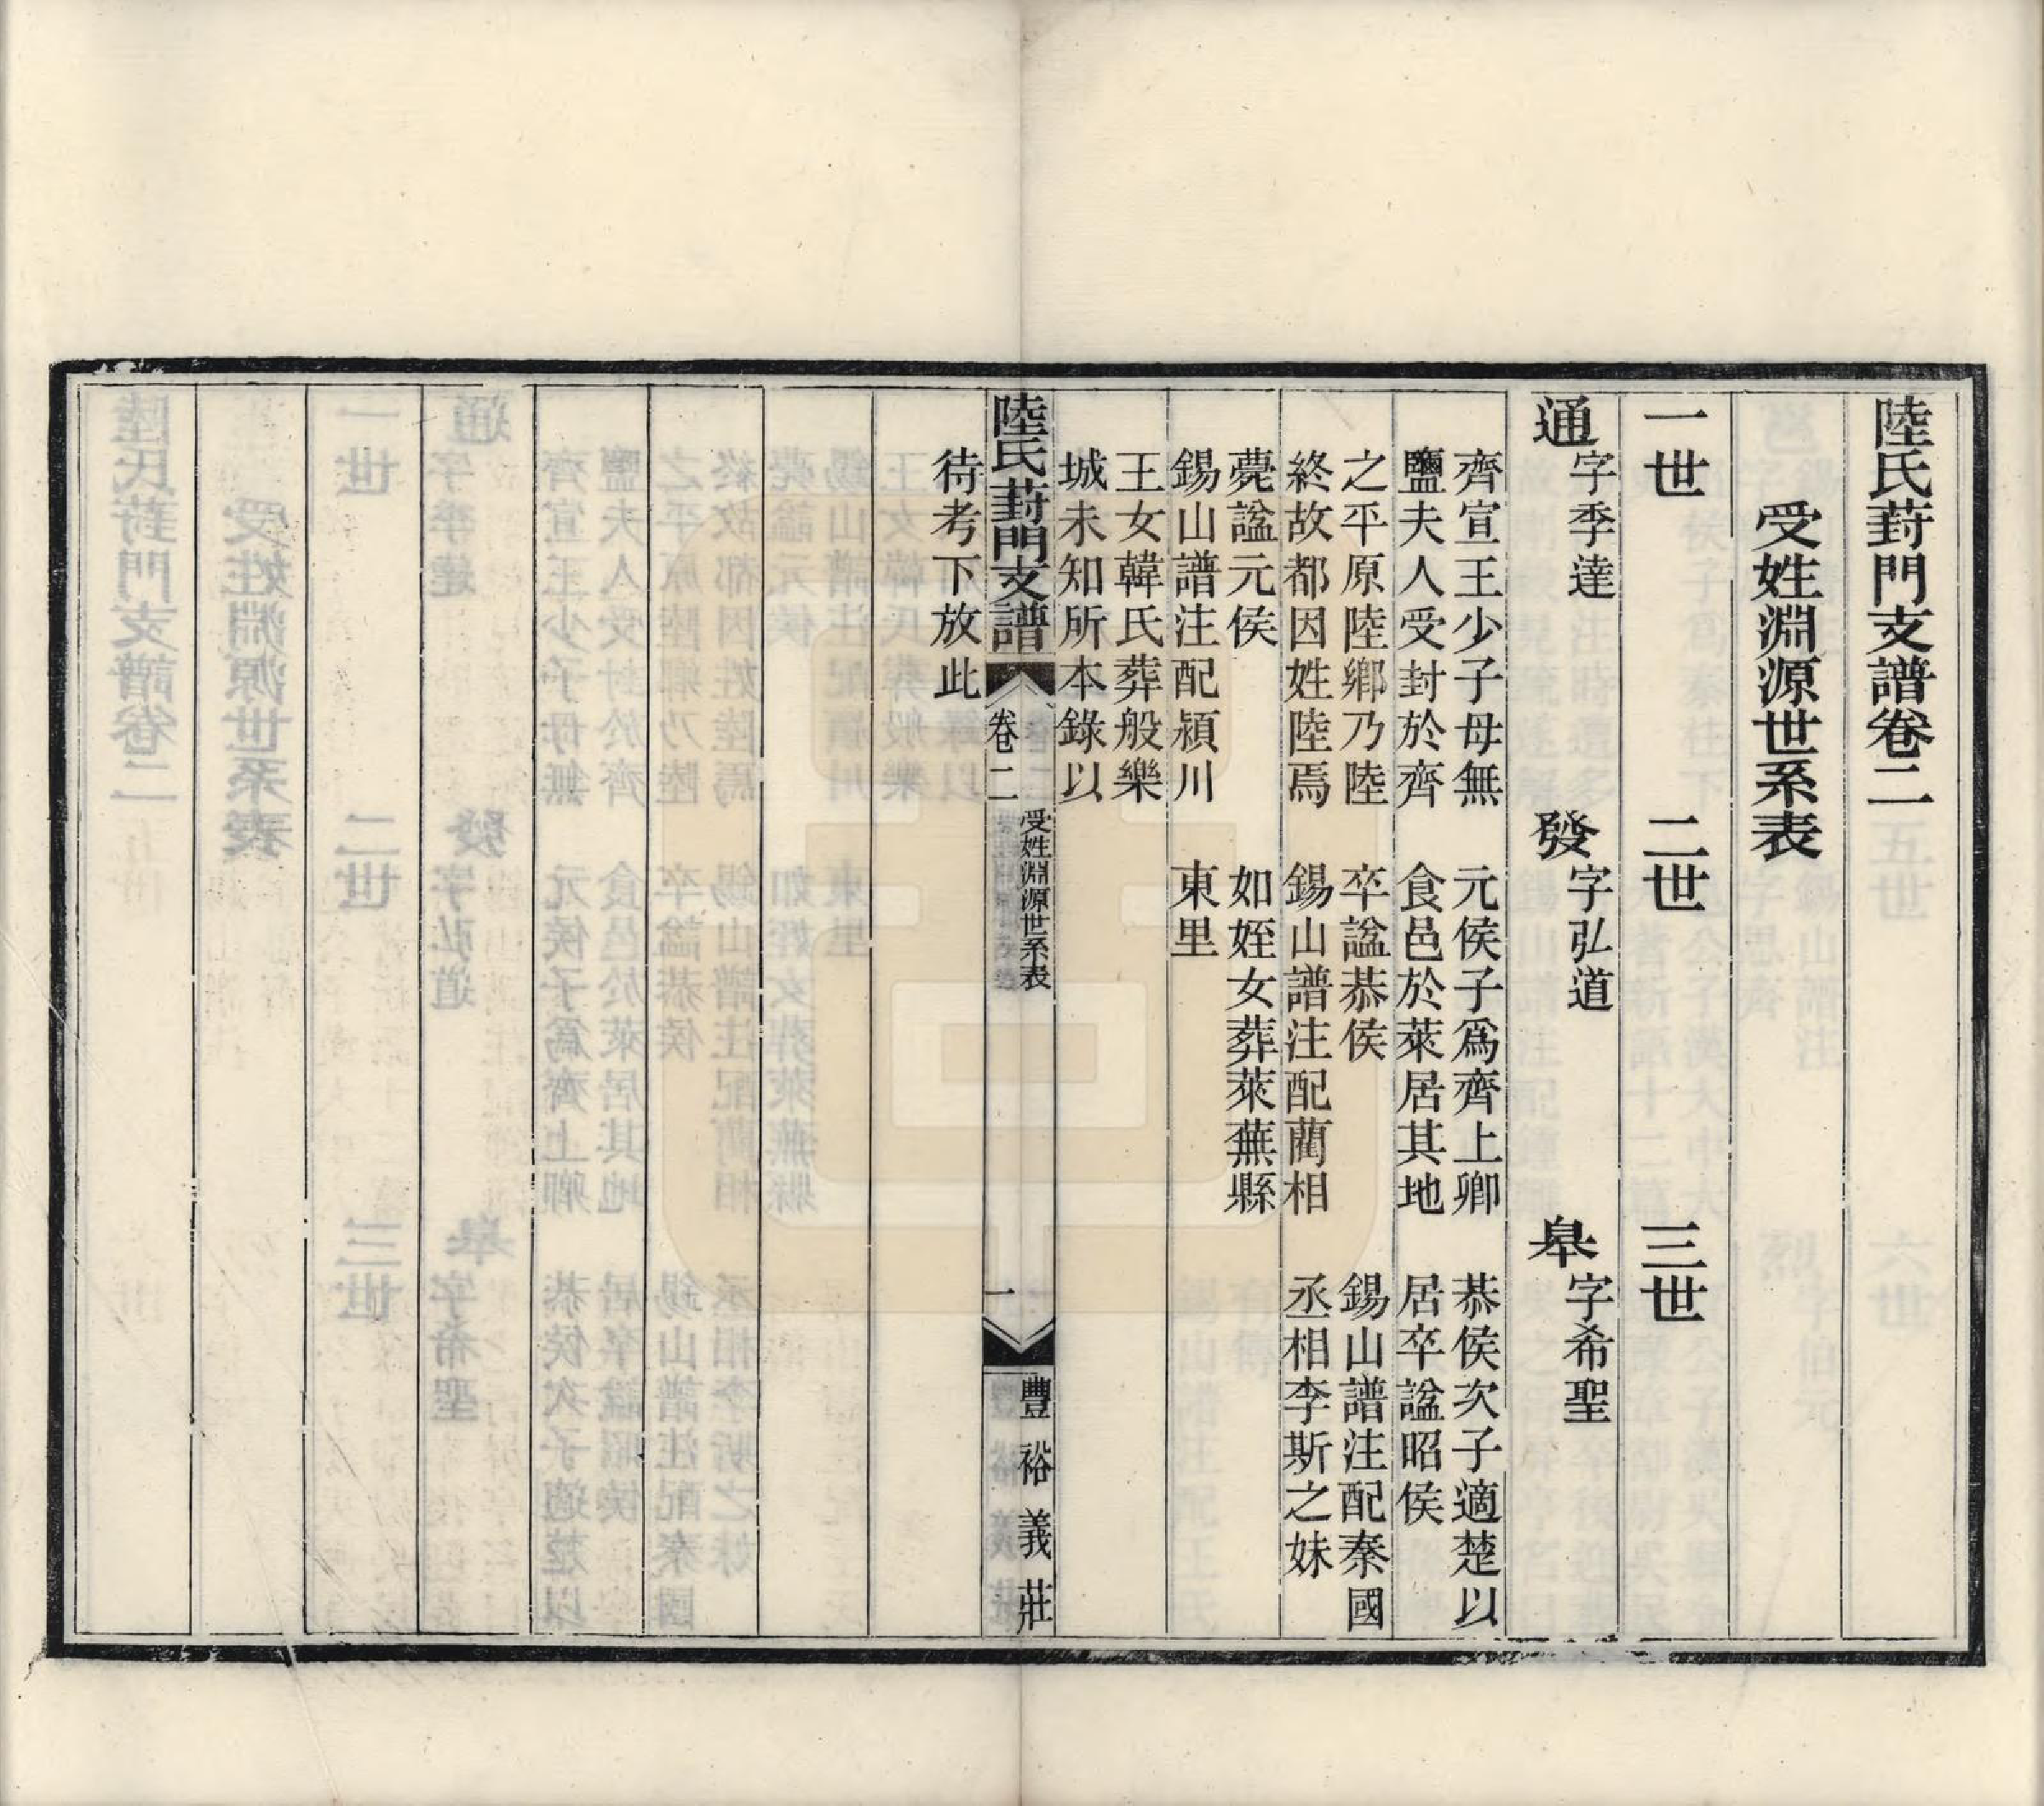 陸氏葑門支譜卷二
受姓淵源世系表
一世　二世　三世
通　字季達　發　字弘道　皋　字希聖
齊宣王少子母無　元侯子爲齊上卿　恭侯次子適楚以
鹽夫人受封於齊　食邑於萊居其地　居卒諡昭侯
之平原陸鄉乃陸　卒諡恭侯　錫山譜注配秦國
終故都因姓陸焉　錫山譜注配藺相　丞相李斯之妹
薨諡元侯　如姪女葬萊蕪縣
錫山譜注配潁川　東里
王女韓氏葬般樂
城未知所本錄以
陸氏葑門支譜　卷二　受姓淵源世系表　一　豐裕義莊
待考下放此